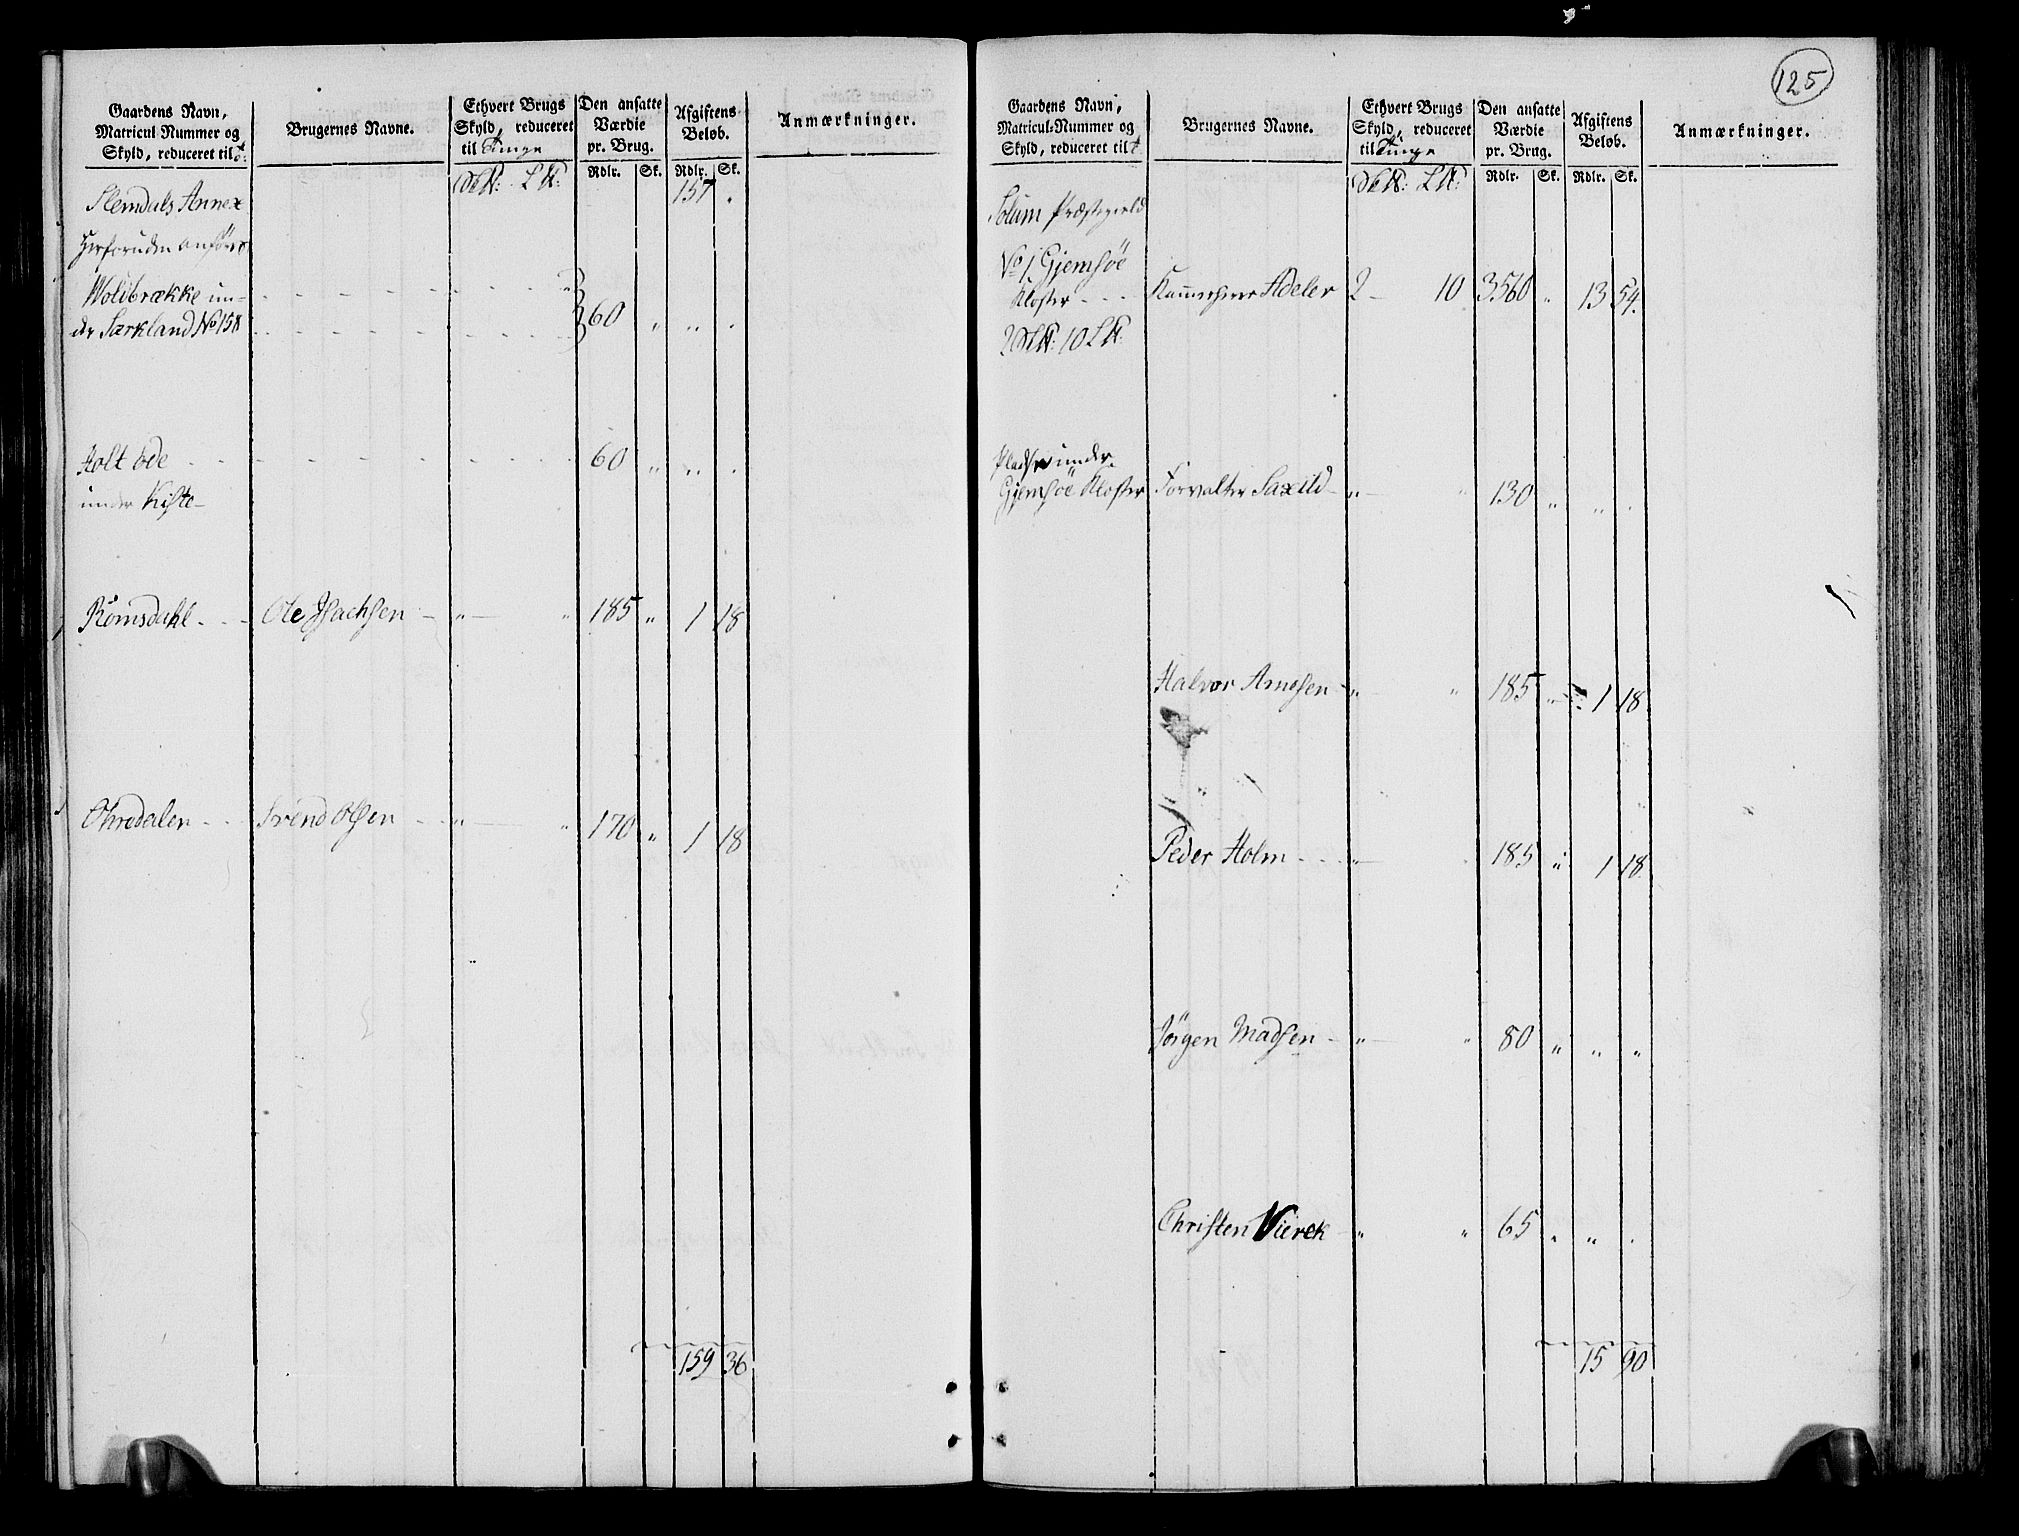 125
Gaardens Navn, Matricul-Nummer og Skyld, reduceret til
Brugernes Navne.
Ethvert Brugs Skyld, reduceret til Tunge
Den ansatte Værdie pr. Brug.
Afgiftens Beløb.
Anmærkninger.
Rdlr. Sk. Rdlr. Sk.
Slemdals Annex 157 "
Herforuden anføres
Wolebrække un-
der Særkland No 158 60 " " "
Holt øde 60 " " "
under Kiste
Romsdahl Ole Isachsen " " 185 " 1 18
Ohredalen Svend Olsen " " 170 " 1 18
159 36
Gaardens Navn, Matricul-Nummer og Skyld, reduceret til
Brugernes Navne.
Ethvert Brugs Skyld, reduceret til Tunge
Den ansatte Værdie pr. Brug.
Afgiftens Beløb.
Anmærkninger.
Rdlr. Sk. Rdlr. Sk.
Solum Præstegield
No 1 Gjemsøe
Kloster Kammerherre Adeler 2 10 3560 " 13 54.
Pladser under
Gjemsøe Kloster Forvalter Saxild " " 130 " " "
Halvor Arnesen " " 185 " 1 18
Peder Holm " " 185 " 1 18
Jørgen Madsen " " 80 " " "
Christen Vierek " " 65 " " "
15 90